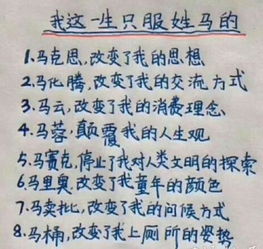 我这一生只服姓马的
1.马克思,改变了我的思想
2.马化腾,改变了我的交流方式
3.马云,改变了我的消费理念
4.马蓉,颠覆我的人生观
5.马赛克,停止了我对人类文明的探索
6.马里奥,改变了我童年的颜色
7.马卖批,改变了我的问候方式
8.马桶,改变了我上厕所的姿势